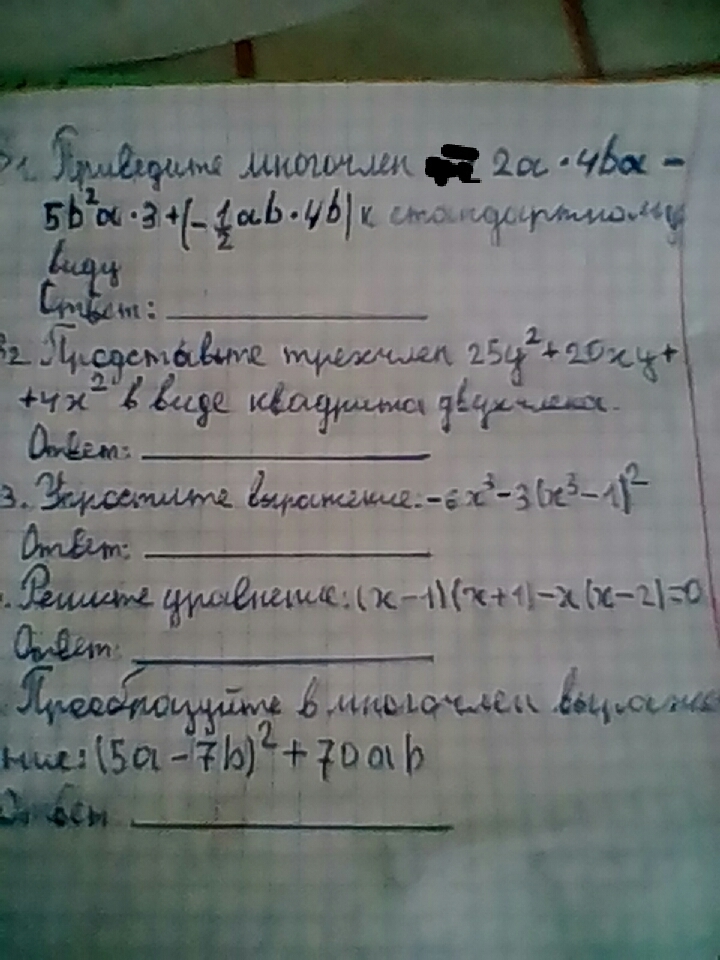 1. Приведите многочлен 2a·4ba -
5b²a·3+(-1/2ab·4b) к стандартному
виду
Ответ:
2 Представьте трехчлен 25y²+20xy+
+4x² в виде квадрата двухчлена.
Ответ:
3. Упростите выражение: -6x³-3(x³-1)²
Ответ:
. Решите уравнение: (x-1)(x+1)-x(x-2)=0
Ответ:
. Преобразуйте в многочлен выраже
ние: (5a-7b)²+70ab